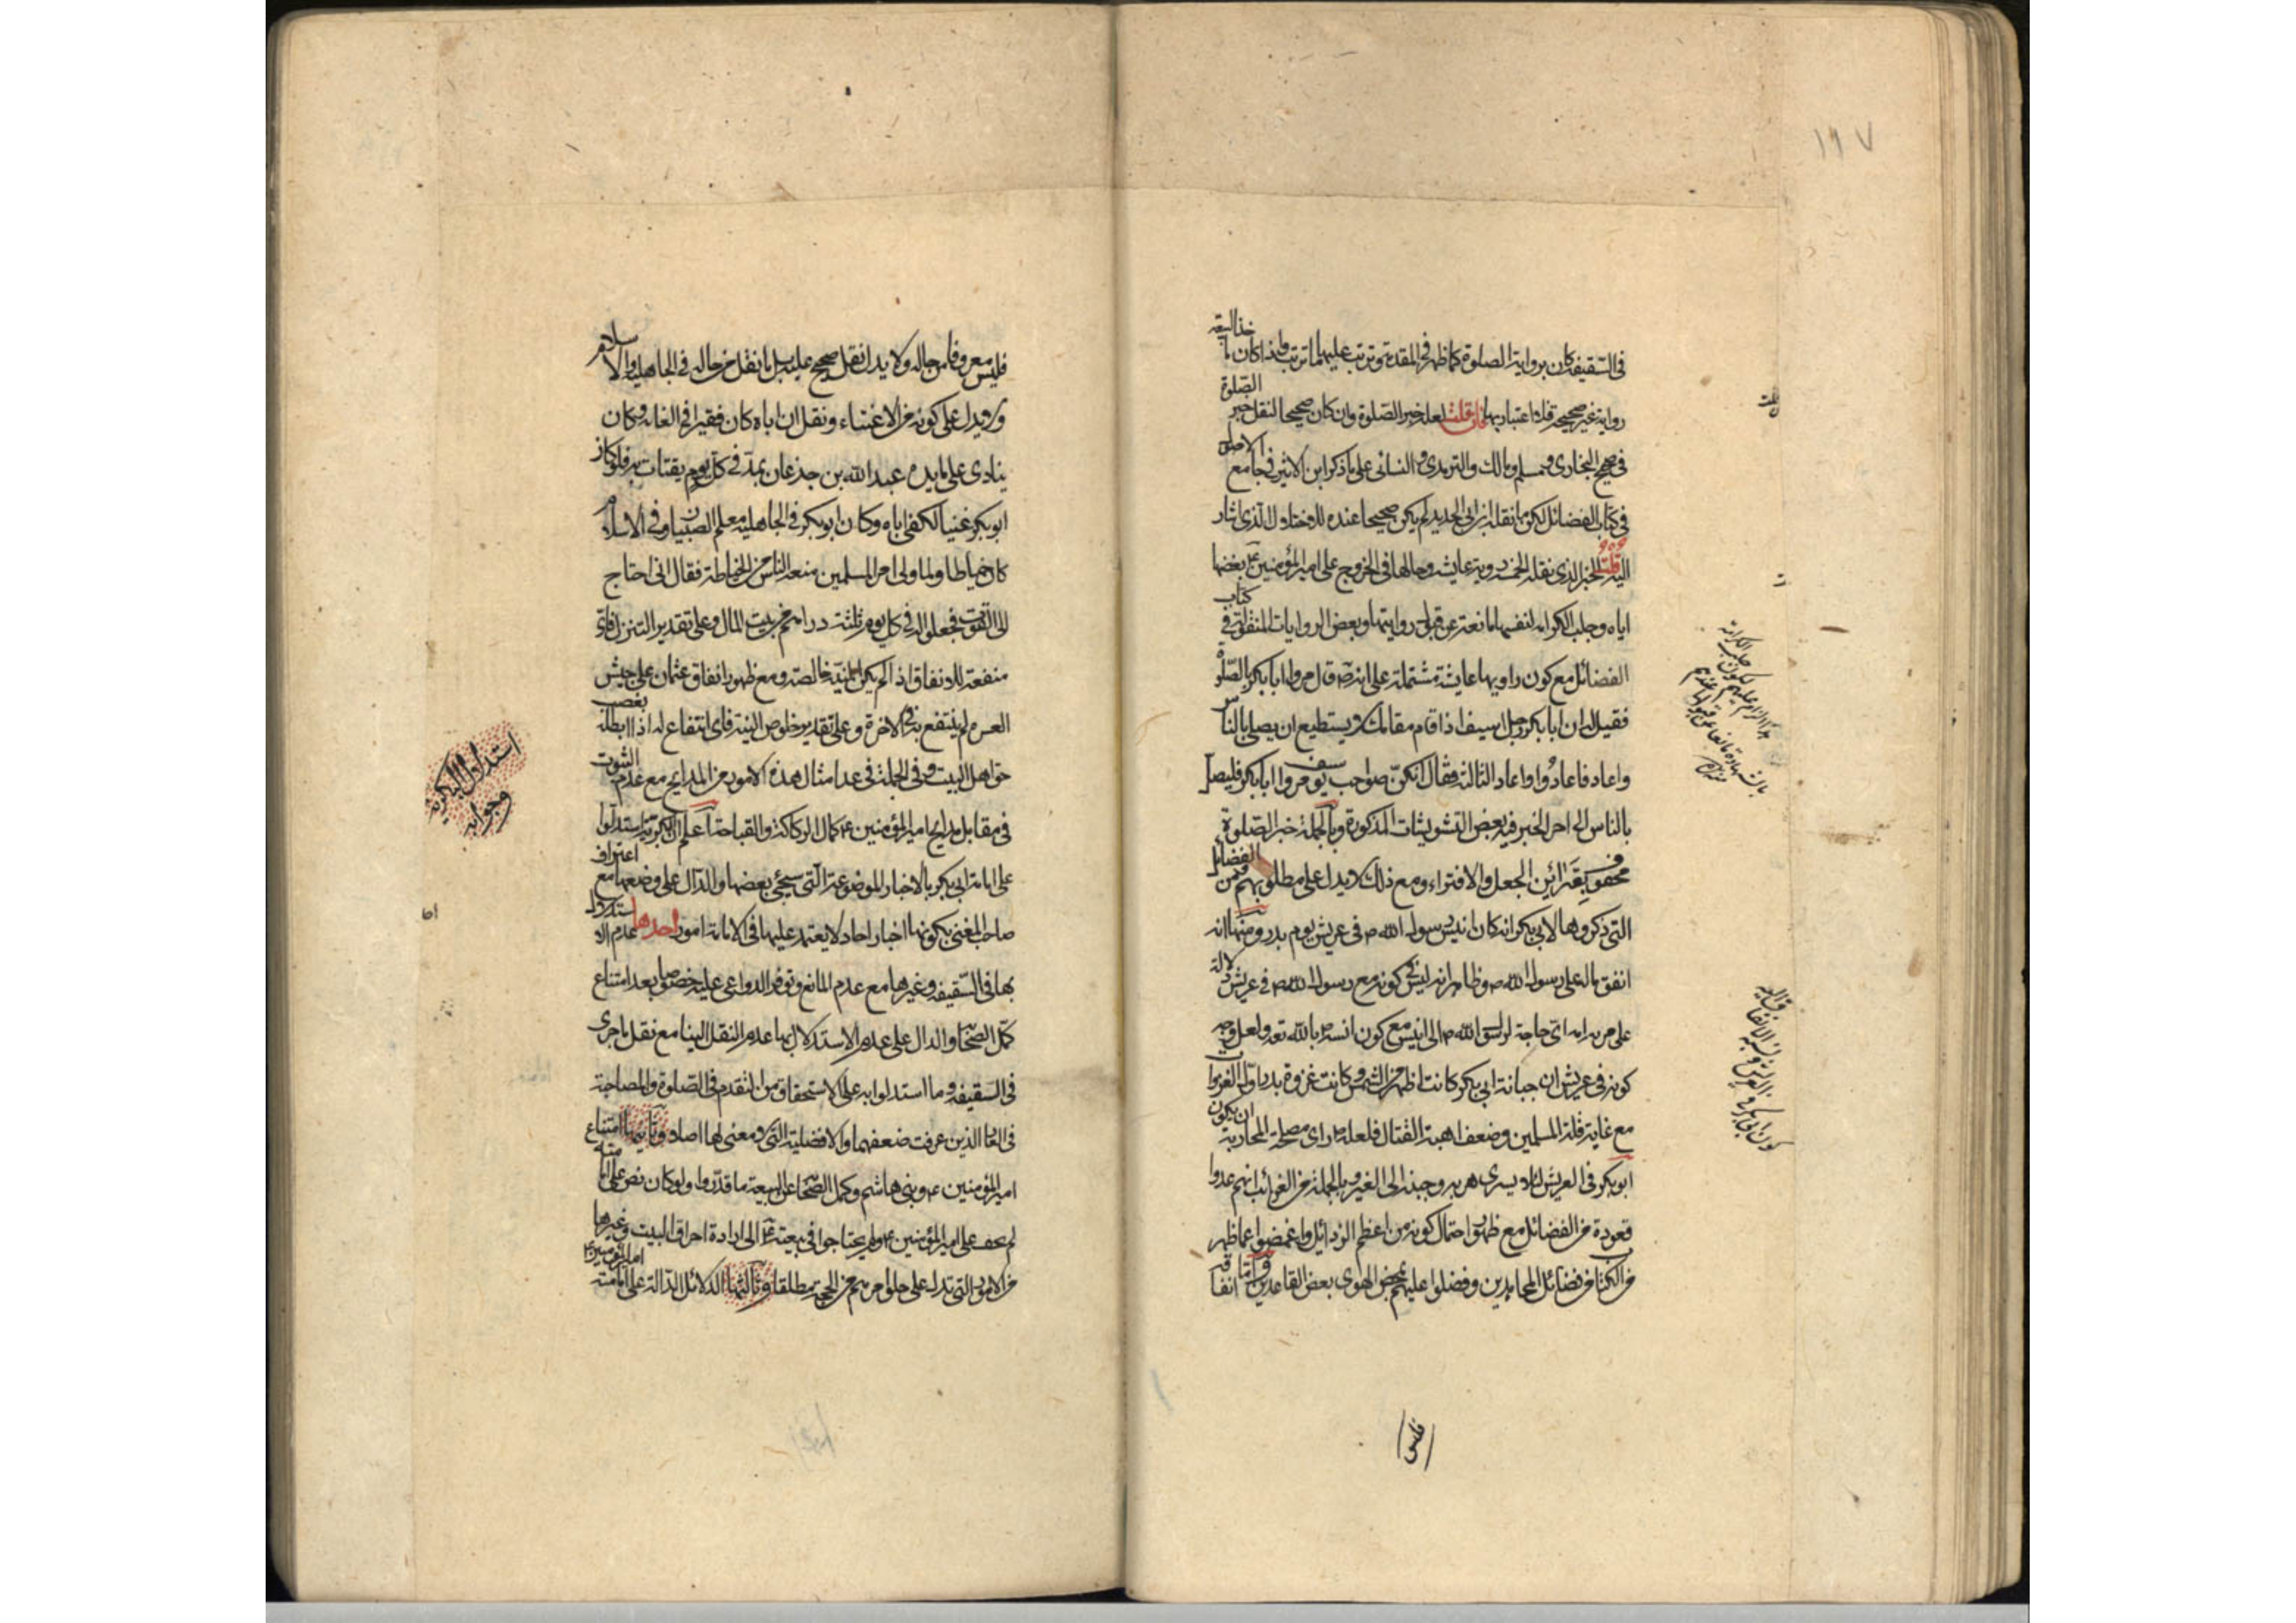 ١١٧
في السقيفة كان برواية الصلوة كما ظهر في المقدمة وترتب عليهما ما ترتب ولذا كان مأخذ البيعة
رواية غير صحيحة فلا اعتبار بها فان قلت لعل خبر الصلوة وان كان صحيحا لنقل خبر الصلوة
في صحيح البخاري ومسلم ومالك والترمدي والنسائى على ما ذكر ابن الاثير في جامع الاصول
في كتاب الفضائل لكن ما نقله ابن ابي الحديد لم يكن صحيحا عنده للاختلاف الذى اشار
اليه قلت الخبر الذى نقله الخمسة روية عايشة وحالها في الخروج على امير المؤمنين ع وبغضها
اياه وجلب الكرامة لنفسها مانعة عن قبول روايتها وبعض الروايات المنقولة في كتاب
الفضائل مع كون راويها عايشة مشتملة على انه ص قال مروا ابا بكر بالصلوة
فقيل له ان ابا بكر رجل اسيف اذا قام مقامك لا يستطيع ان يصلي بالناس
واعاد فاعادوا واعاد الثالثة فقال انكن صواحب يوسف مروا ابا بكر فليصل
بالناس الى اخر الخبر فيه بعض التشويشات المذكورة وبالجملة خبر الصلوة
محفوف بقرائن الجعل والافتراء ومع ذلك لا يدل على مطلوبهم فمن الفضائل
التي ذكروها لابي بكر انه كان انيس رسول الله ص في عريش يوم بدر ومنها انه
انفق ماله على رسول الله ص وظاهر انه ليس في كونه مع رسول الله ص في عريش دلالة
على مرتبة له اى حاجة لرسول الله ص الى انيس مع كون انسه بالله تعه ولعل وجه
كونه في عريش ان جبانة ابي بكر كانت اظهر من الشمس وكانت غزوة بدر اول الغزوات
مع غاية قلة المسلمين وضعف اهبة القتال فلعله ص راى مصلحة المحاربة ان يكون
ابو بكر في العريش لئلا يسرى هربه وجبنه الى الغير وبالجملة من الغرائب انهم عدوا
قعوده من الفضائل مع ظهور احتمال كونه من اعظم الرذائل واغمضوا عما ظهر
من الكتاب من فضائل المجاهدين وفضلوا عليهم بمحض الهوى بعض القاعدين واما انفاقه
فليس
فليس معروفا من حاله ولا يدل نقل صحيح عليه بل ما نقل من حاله في الجاهلية والاسلام
لا يدل على كونه من الاغنياء ونقل ان اباه كان فقيرا في الغاية وكان
ينادى على مايدة عبد الله بن جذعان بمد في كل يوم يقتات به فلو كان
ابو بكر غنيا لكفى اباه وكان ابو بكر في الجاهلية معلم الصبيان وفي الاسلام
كان خياطا ولما ولى امر المسلمين منعه الناس من الخياطة فقال انى احتاج
الى القوت فجعلوا له في كل يوم ثلثة دراهم من بيت المال وعلى تقدير التنزل فاى
منفعة للانفاق اذا لم يكن النية خالصة ومع ظهور انفاق عثمان على جيش
العسرة لم ينتفع به في الاخرة وعلى تقدير خلوص النية فاى انتفاع له اذا ابطله بغصب
حق اهل البيت وفي الجملة في عد امثال هذه الامور من المدايح مع عدم الثبوت
في مقابل مدايح امير المؤمنين ع كمال الركاكة والقباحة اعلم ان البكرية استدلوا
على امامة ابي بكر بالاخبار الموضوعة التي سيجئ بعضها والدال على وضعها مع اعتراف
صاحب المغنى بكونها اخبار احاد لا يعتمد عليها في الامامة امور احدها عدم الاستدلال
بها في السقيفة وغيرها مع عدم المانع وتوفر الدواعي عليه خصوصا بعد امتناع
كمل الصحابة والدال على عدم الاستدلال بها عدم النقل الينا مع نقل ما جرى
في السقيفة وما استدلوا به على الاستحقاق من التقدم في الصلوة والمصاحبة
في الغار الذين عرفت ضعفهما والافضلية التي لا معنى لها اصلا وثانيها امتناع
امير المؤمنين ع وبني هاشم وكمل الصحابة عن البيعة ما قدروا ولو كان نص على امامته
لم يخف على امير المؤمنين ع ولم يحتاجوا في بيعته ع الى ارادة احراق البيت وغيرها
من الامور التي تدل على خلو امرهم من الحجة مطلقا وثالثها الدلائل الدالة على امامة امير المؤمنين ع
استدلال البكرية
وجوابه